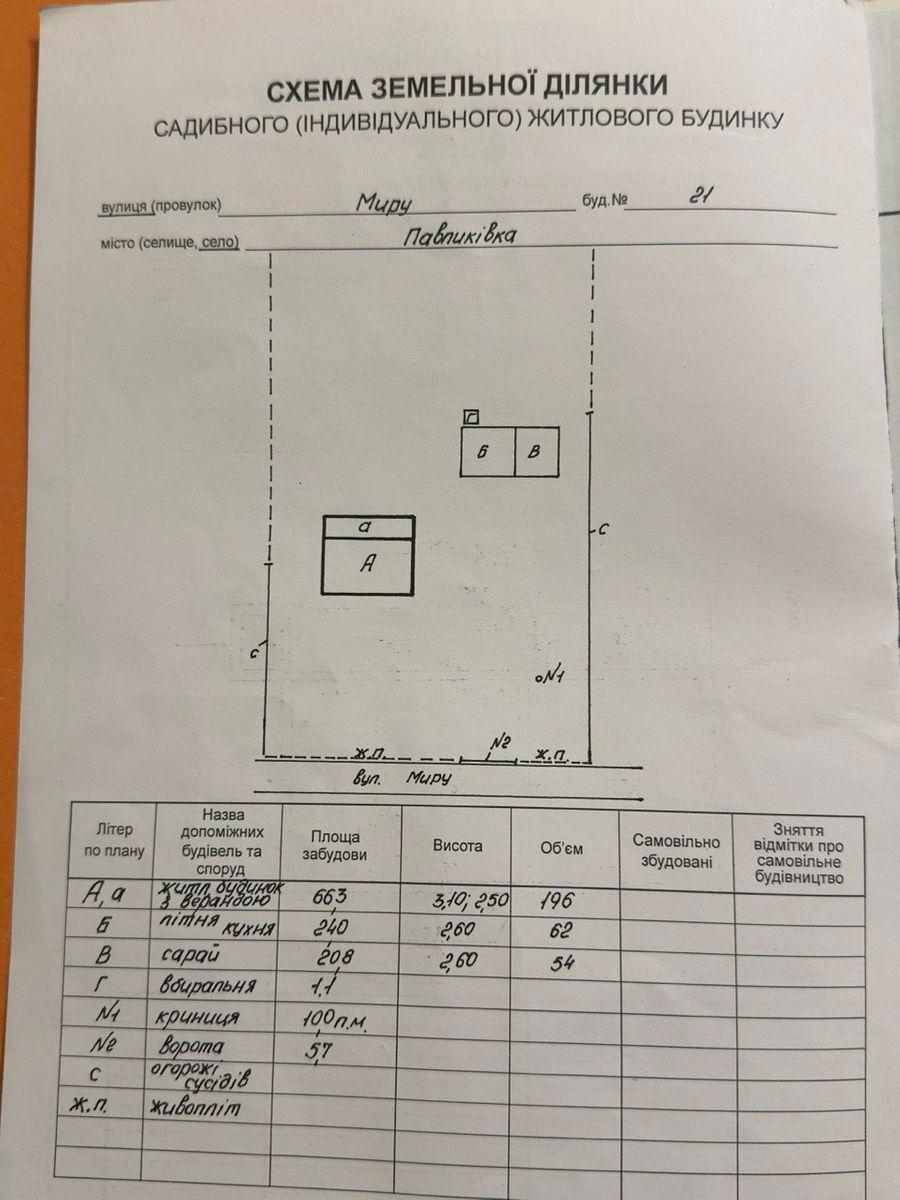 СХЕМА ЗЕМЕЛЬНОЇ ДІЛЯНКИ
САДИБНОГО (ІНДИВІДУАЛЬНОГО) ЖИТЛОВОГО БУДИНКУ
вулиця (провулок) Миру буд.№ 21
місто (селище, село) Павликівка
Г
Б В
а
А
с
с
№1
№2
ж.п. ж.п.
вул. Миру
Літер по плану Назва допоміжних будівель та споруд Площа забудови Висота Об'єм Самовільно збудовані Зняття відмітки про самовільне будівництво
А, а житл. будинок з верандою 66,3 3,10; 2,50 196
Б літня кухня 24,0 2,60 62
В сарай 20,8 2,60 54
Г вбиральня 1,1
№1 криниця 10,0 п.м.
№2 ворота 5,7
С огорожі сусідів
ж.п. живопліт